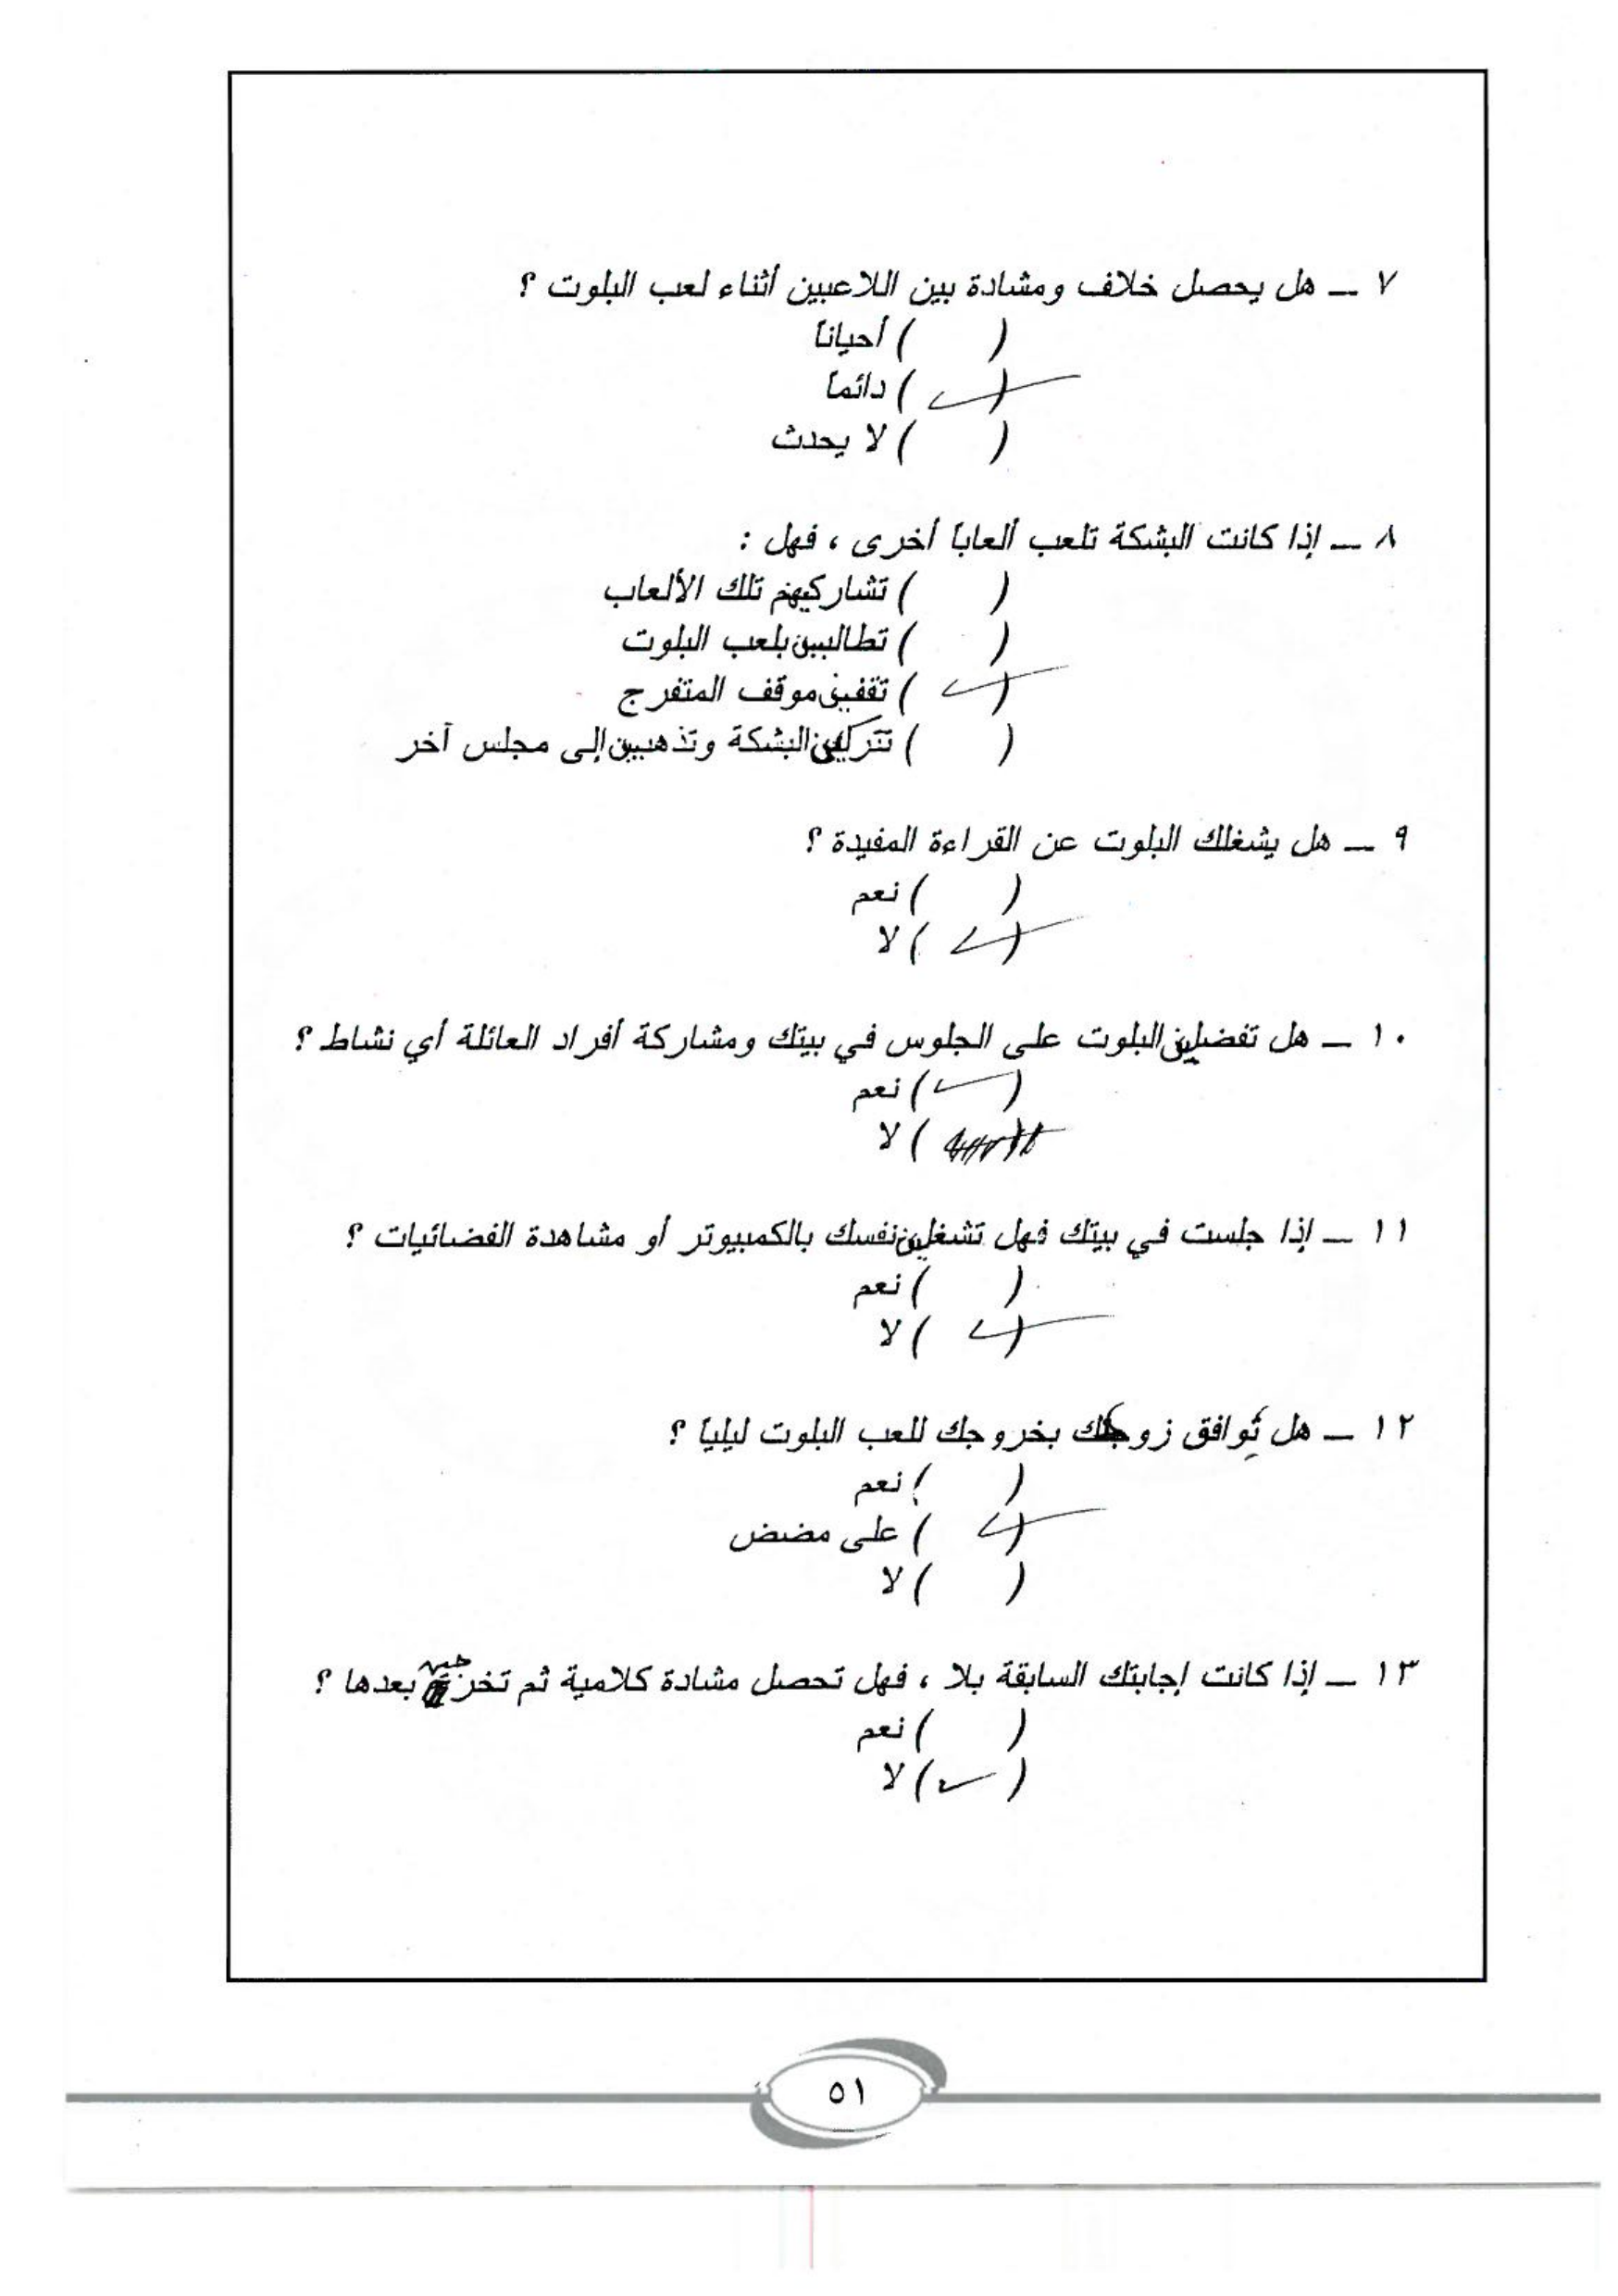 ٧ ــ هل يحصل خلاف ومشادة بين اللاعبين أثناء لعب البلوت ؟
(    ) أحياناً
( ✓ ) دائماً
(    ) لا يحدث
٨ ــ إذا كانت البشكة تلعب ألعاباً أخرى ، فهل :
(    ) تشاركيهم تلك الألعاب
(    ) تطالبين بلعب البلوت
( ✓ ) تقفين موقف المتفرج
(    ) تتركين البشكة وتذهبين إلى مجلس آخر
٩ ــ هل يشغلك البلوت عن القراءة المفيدة ؟
(    ) نعم
( ✓ ) لا
١٠ ــ هل تفضلين البلوت على الجلوس في بيتك ومشاركة أفراد العائلة أي نشاط ؟
( ✓ ) نعم
(    ) لا
١١ ــ إذا جلست في بيتك فهل تشغلين نفسك بالكمبيوتر أو مشاهدة الفضائيات ؟
(    ) نعم
( ✓ ) لا
١٢ ــ هل يوافق زوجك بخروجك للعب البلوت ليلياً ؟
(    ) نعم
( ✓ ) على مضض
(    ) لا
١٣ ــ إذا كانت إجابتك السابقة بلا ، فهل تحصل مشادة كلامية ثم تخرجين بعدها ؟
(    ) نعم
( ✓ ) لا
٥١